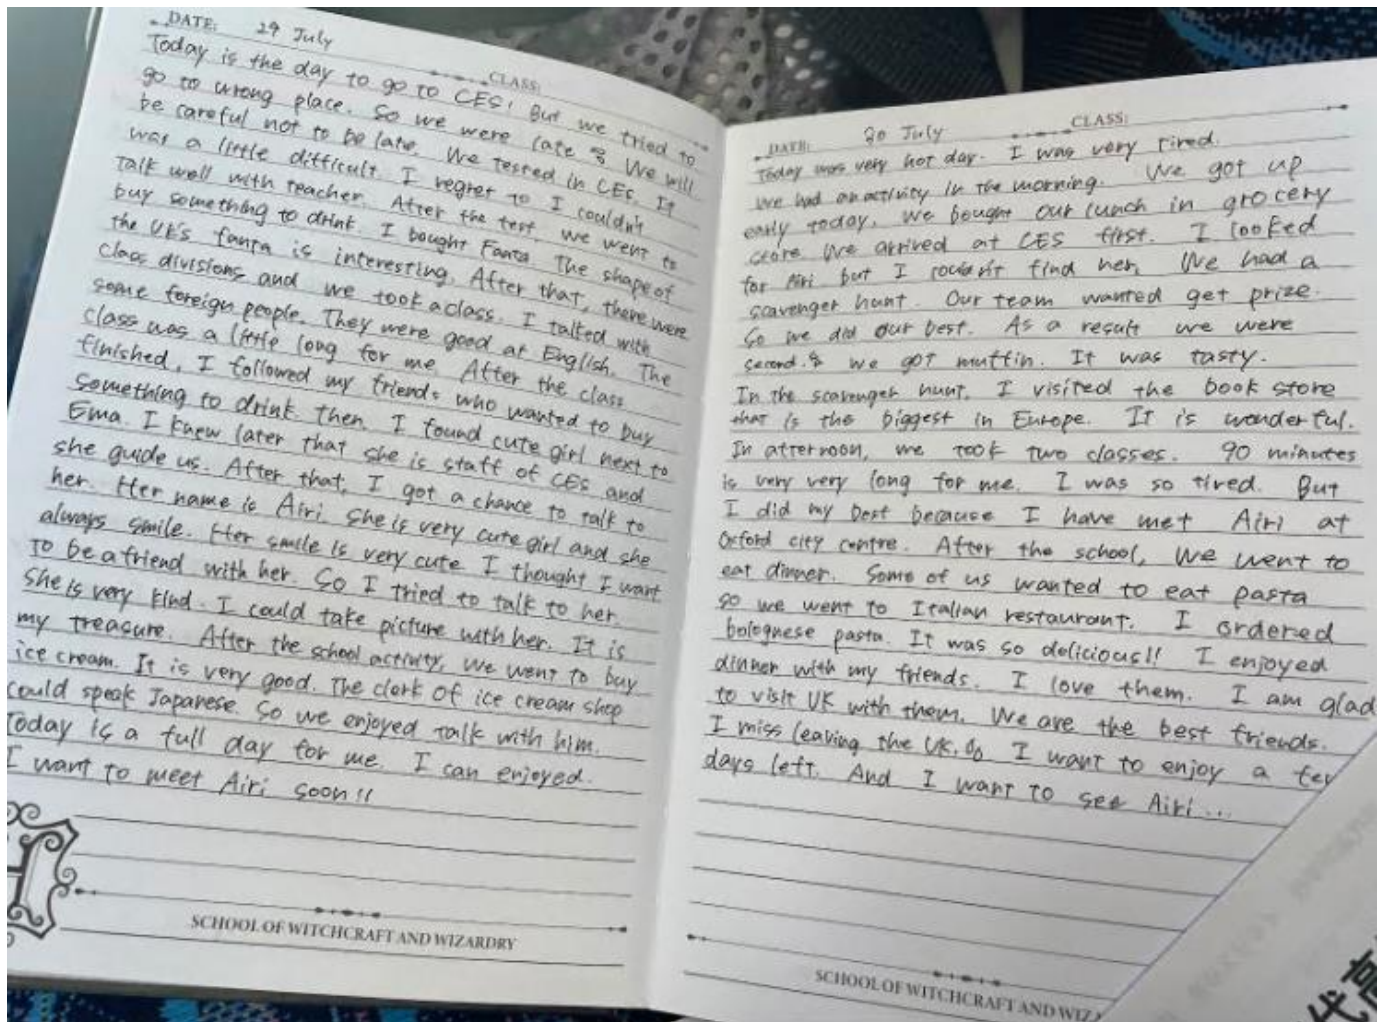 DATE: 29 July
CLASS:
Today is the day to go to CES! But we tried to
go to wrong place. So we were late We will
be careful not to be late. We tested in CES. It
was a little difficult. I regret to I couldn't
talk well with teacher. After the test, we went to
buy something to drink. I bought Fanta. The shape of
the UK's fanta is interesting. After that, there were
class divisions and we took a class. I talked with
some foreign people. They were good at English. The
class was a little long for me. After the class
finished, I followed my friends who wanted to buy
something to drink. Then, I found cute girl next to
Ema. I knew later that she is staff of CES and
she guide us. After that, I got a chance to talk to
her. Her name is Airi. She is very cute girl and she
always smile. Her smile is very cute. I thought I want
to be a friend with her. So I tried to talk to her.
She is very kind. I could take picture with her. It is
my treasure. After the school activity, we went to buy
ice cream. It is very good. The clerk of ice cream shop
could speak Japanese. So we enjoyed talk with him.
Today is a full day for me. I can enjoyed.
I want to meet Airi soon!!
SCHOOL OF WITCHCRAFT AND WIZARDRY
DATE: 30 July
CLASS:
Today was very hot day. I was very tired.
We had an activity in the morning. We got up
early today. We bought our lunch in grocery
store. We arrived at CES first. I looked
for Airi but I find her. We had a
scavenger hunt. Our team wanted get prize.
So we did our best. As a result we were
second. we got muffin. It was tasty.
In the scavenger hunt, I visited the book store
that is the biggest in Europe. It is wonderful.
In afternoon, we took two classes. 90 minutes
is very very long for me. I was so tired. But
I did my best because I have met Airi at
Oxford city centre. After the school, we went to
eat dinner. Some of us wanted to eat pasta
so we went to Italian restaurant. I ordered
bolognese pasta. It was so delicious!! I enjoyed
dinner with my friends. I love them. I am glad
to visit UK with them. We are the best friends.
I miss leaving the UK. I want to enjoy a
days left. And I want to see Airi...
SCHOOL OF WITCHCRAFT AND
代高